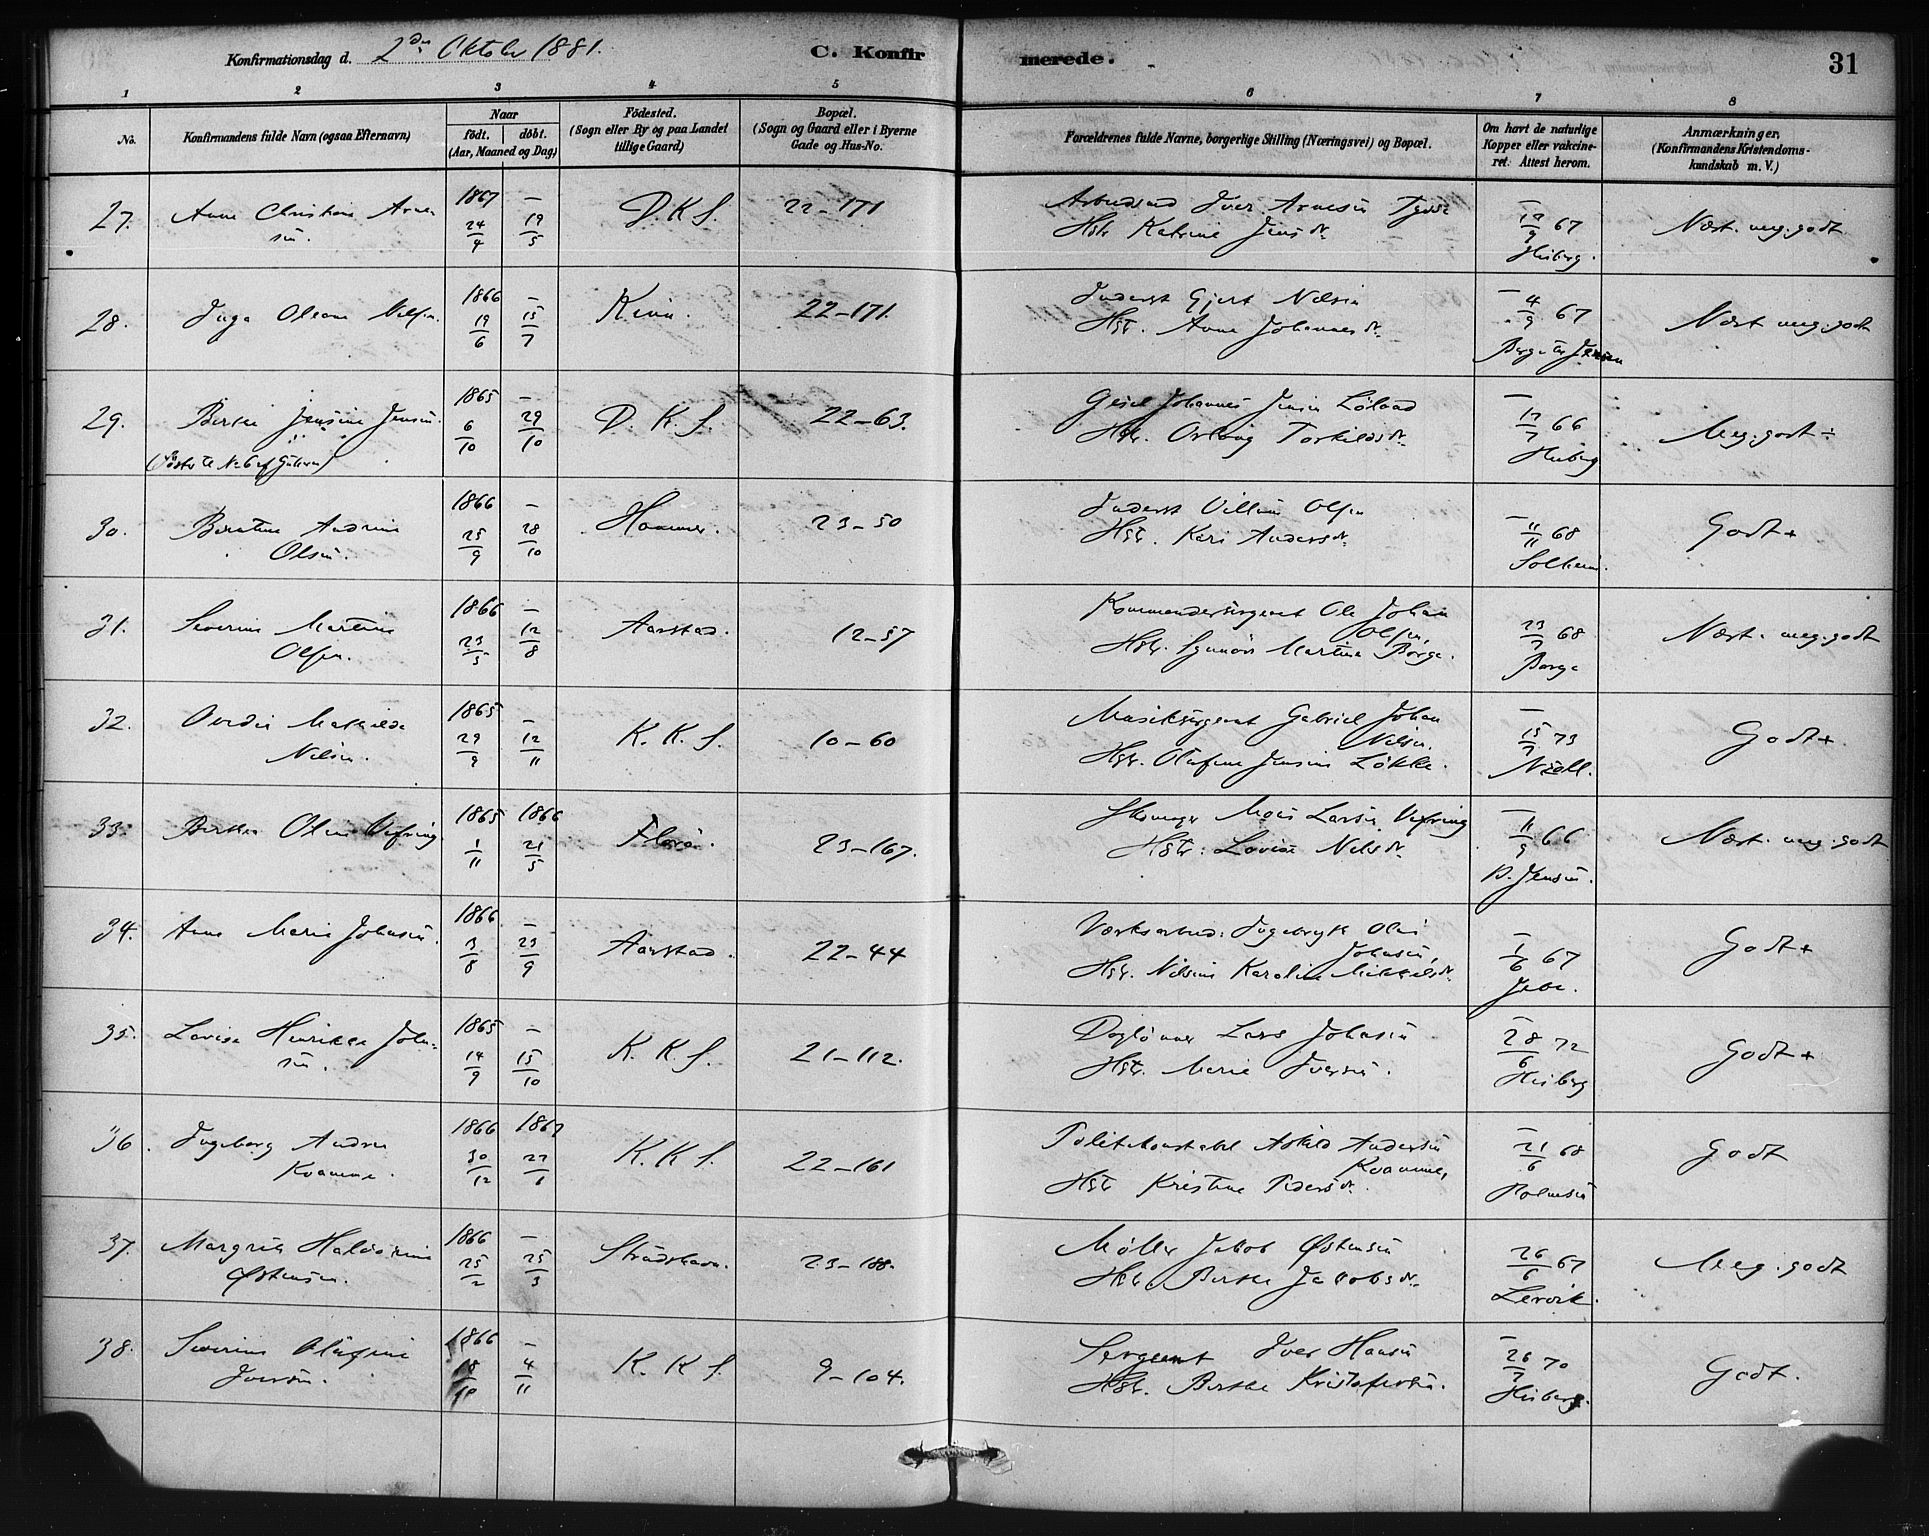 Konfirmationsdag d. 2den Oktober 1881.
C. Konfirmerede.
31
1 2 3 4 5 6 7 8
No.
Konfirmandens fulde Navn (ogsaa Efternavn)
Naar
født. døbt.
(Aar, Maaned og Dag)
Fødested.
(Sogn eller By og paa Landet
tillige Gaard)
Bopæl.
(Sogn og Gaard eller i Byerne
Gade og Hus-No.
Forældrenes fulde Navne, borgerlige Stilling (Næringsvei) og Bopæl.
Om havt de naturlige
Kopper eller vakcine-
ret. Attest herom.
Anmærkninger,
(Konfirmandens Kristendoms-
kundskab m. V.)
27. 1867 — D.K.S. 22-171 Iver Arnesen —
Anne Christine Arne-
sen. 24/4 19/5 Hstr Katrine Jensdr. 67 Næst. meg. godt
Heiberg.
28. 1866 — Kinn. 22-171. Inderst Gjert Nilsen — 4/9 67
Inga Oleane Nilsen. 19/6 15/7 Hstr. Anne Johannesdr. Næst meg. godt
29. 1865 — D.K.S. 22-63. Johannes Jensen —
Berthe Jensine Jensen. 6/10 29/10 Hstr. Torkildsdr. 12/7 66 Meg. godt ÷
Heiberg
30. 1866 — Hammer. 23-50 Inderst Villum Olsen —
Andrine
Olsen. 25/9 28/10 Hstr. Kari Andersdr. 11/11 68 Godt+
Solheim.
31. 1866 — Aarstad. 12-57 Kommandersergeant Ole Johan
Severine Martine Olsen,
Olsen. 23/5 12/8 Hstr. Synnøve Martine Borge. 23/7 68 Næst. meg. godt
Borge
32. 1865 — K.K.S. 10-60 Musiksergeant Gabriel Johan —
Mathilde Nilsen.
Nilsen. 29/9 12/11 Hstr. Olufine Jensine Løkke. 15/7 73 Godt+
33. 1865 1866 Florø. 23-167. Skomager Mons Larsen Vefring —
Berthe Oline Vefring 1/11 21/5 Hstr: Lovise Nilsdr. 11/9 66 Næst. meg. godt
B. Jensen.
34. 1866 — Aarstad. 22-44 Værksarbeid: Ingebrigt Olai —
Anne Marie Johnsen. Johnsen,
3/8 23/9 Hstr. Nilsine Karoline Mikkelsdr. 1/6 67 Godt+
35. 1865 — K.K.S. 21-112. Daglønner Lars Johnsen
Lovise Henrikke John-
sen. 14/9 15/10 Hstr. Marie Iversen. 28/6 72 Godt+
Heiberg
36. 1866 1867 K.K.S. 22-161 Politikonstabel Askild Andersen —
Ingeborg Andrea Kvamme,
Kvamme. 30/12 27/1 Hstr Kristine Pedersdr. 21/6 68 Godt
37. 1866 — 23-188. Møller Jakob Østensen
Margrete
Østensen. 25/2 25/3 Hstr Berthe Jakobsdr. 26/6 67 Meg. godt
Lervik.
38. 1866 — K.K.S. 9-104. Sergeant Iver Hansen —
Severine Olufine
Iversen. 4/11 Hstr. Berthe Kristofersen. 26/7 70 Godt.
Heiberg.